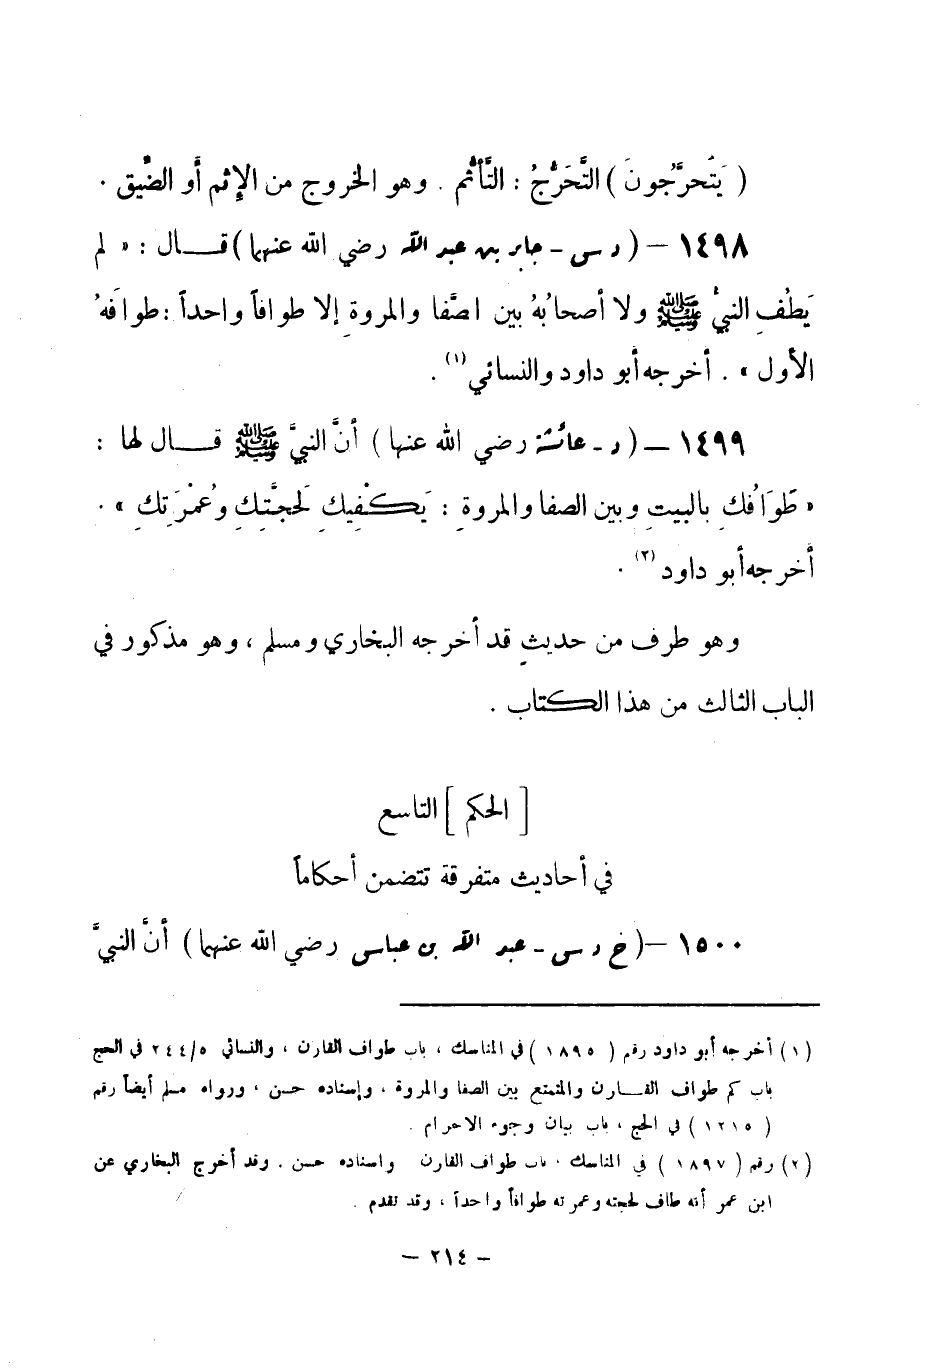 ( يَتحرَّجُونَ ) التَّحَرُّجُ : التَّأثُّم . وهو الخروج من الإثم أو الضِّيق .
١٤٩٨ – ( د س - جابر بن عبد الله رضي الله عنهما ) قـــال : « لم
يَطُفِ النبيُّ ﷺ ولا أصحابُهُ بين اصَّفا والمروةِ إلا طوافاً واحداً : طوافَهُ
الأول » . أخرجه أبو داود والنسائي (١) .
١٤٩٩ – ( د - عائشة رضي الله عنها ) أنَّ النبيَّ ﷺ قـــال لها :
« طَوَافُكِ بالبيتِ وبين الصفا والمروةِ : يَكْفِيكِ لَحجَّتِكِ وعُمْرَتِكِ » .
أخرجه أبو داود (٢) .
وهو طرف من حديثٍ قد أخرجه البخاري ومسلم ، وهو مذكور في
الباب الثالث من هذا الكتاب .
[ الحكم ] التاسع
في أحاديث متفرقة تتضمن أحكاماً
١٥٠٠ – ( خ د س - عبد الله بن عباس رضي الله عنهما ) أنَّ النبيَّ
(١) أخرجه أبو داود رقم ( ١٨٩٥ ) في المناسك ، باب طواف القارن ، والنسائي ٥/٢٤٤ في الحج
باب كم طواف القـــارن والمتمتع بين الصفا والمروة ، وإسناده حسن ، ورواه مسلم أيضاً رقم
( ١٢١٥ ) في الحج ، باب بيان وجوه الاحرام .
(٢) رقم ( ١٨٩٧ ) في المناسك ، باب طواف القارن واسناده حسن . وقد أخرج البخاري عن
ابن عمر أنه طاف لحجته وعمرته طوافاً واحداً ، وقد تقدم .
– ٢١٤ –